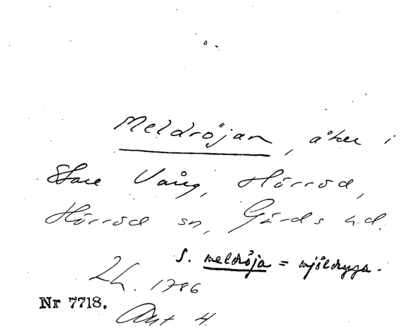 Meldröjan, åker i
Stare Vång, Hörröd,
Hörröd sn, Gärds h.d.
S. meldröja = mjöldryga.
Lh. 1786
Nr 7718.
Akt 4.